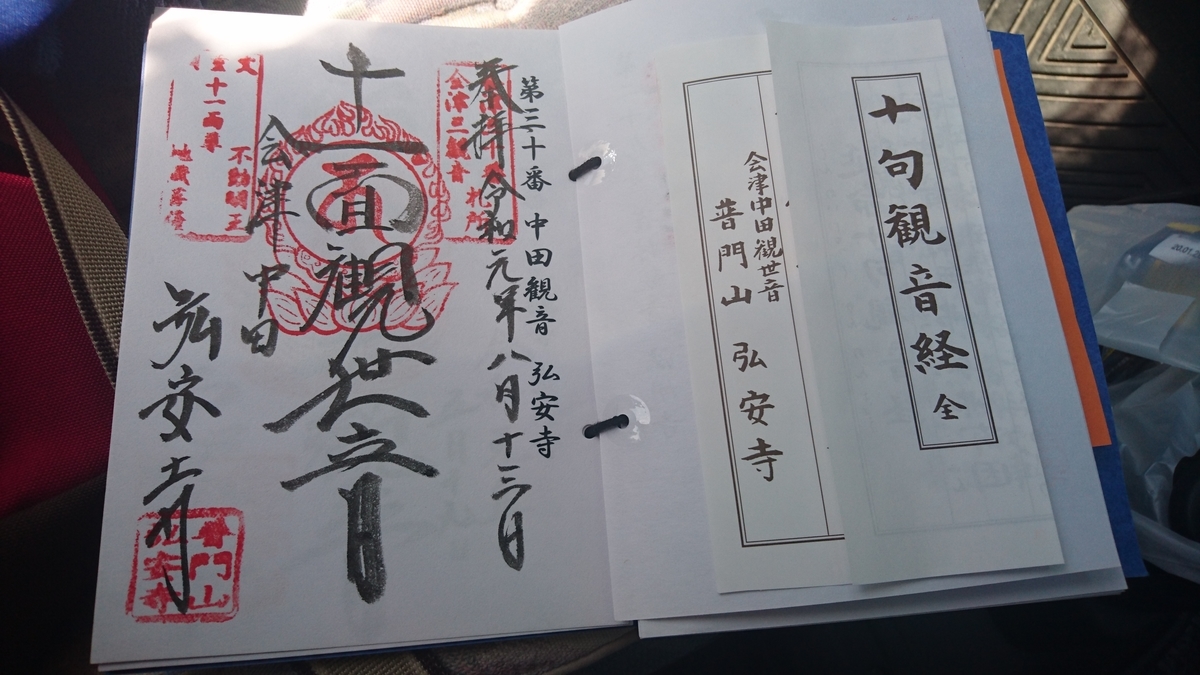 十句観音経 全
会津中田觀世音
普門山 弘安寺
第三十番 中田観音 弘安寺
奉拝 令和元年八月十三日
十一面觀世音
会津 中田
弘安寺
不動明王
十一面尊
地蔵菩薩
普門山
弘安寺